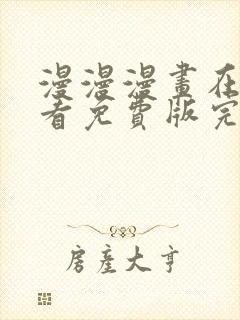 漫漫漫畫在
看免費版完
房產大亨